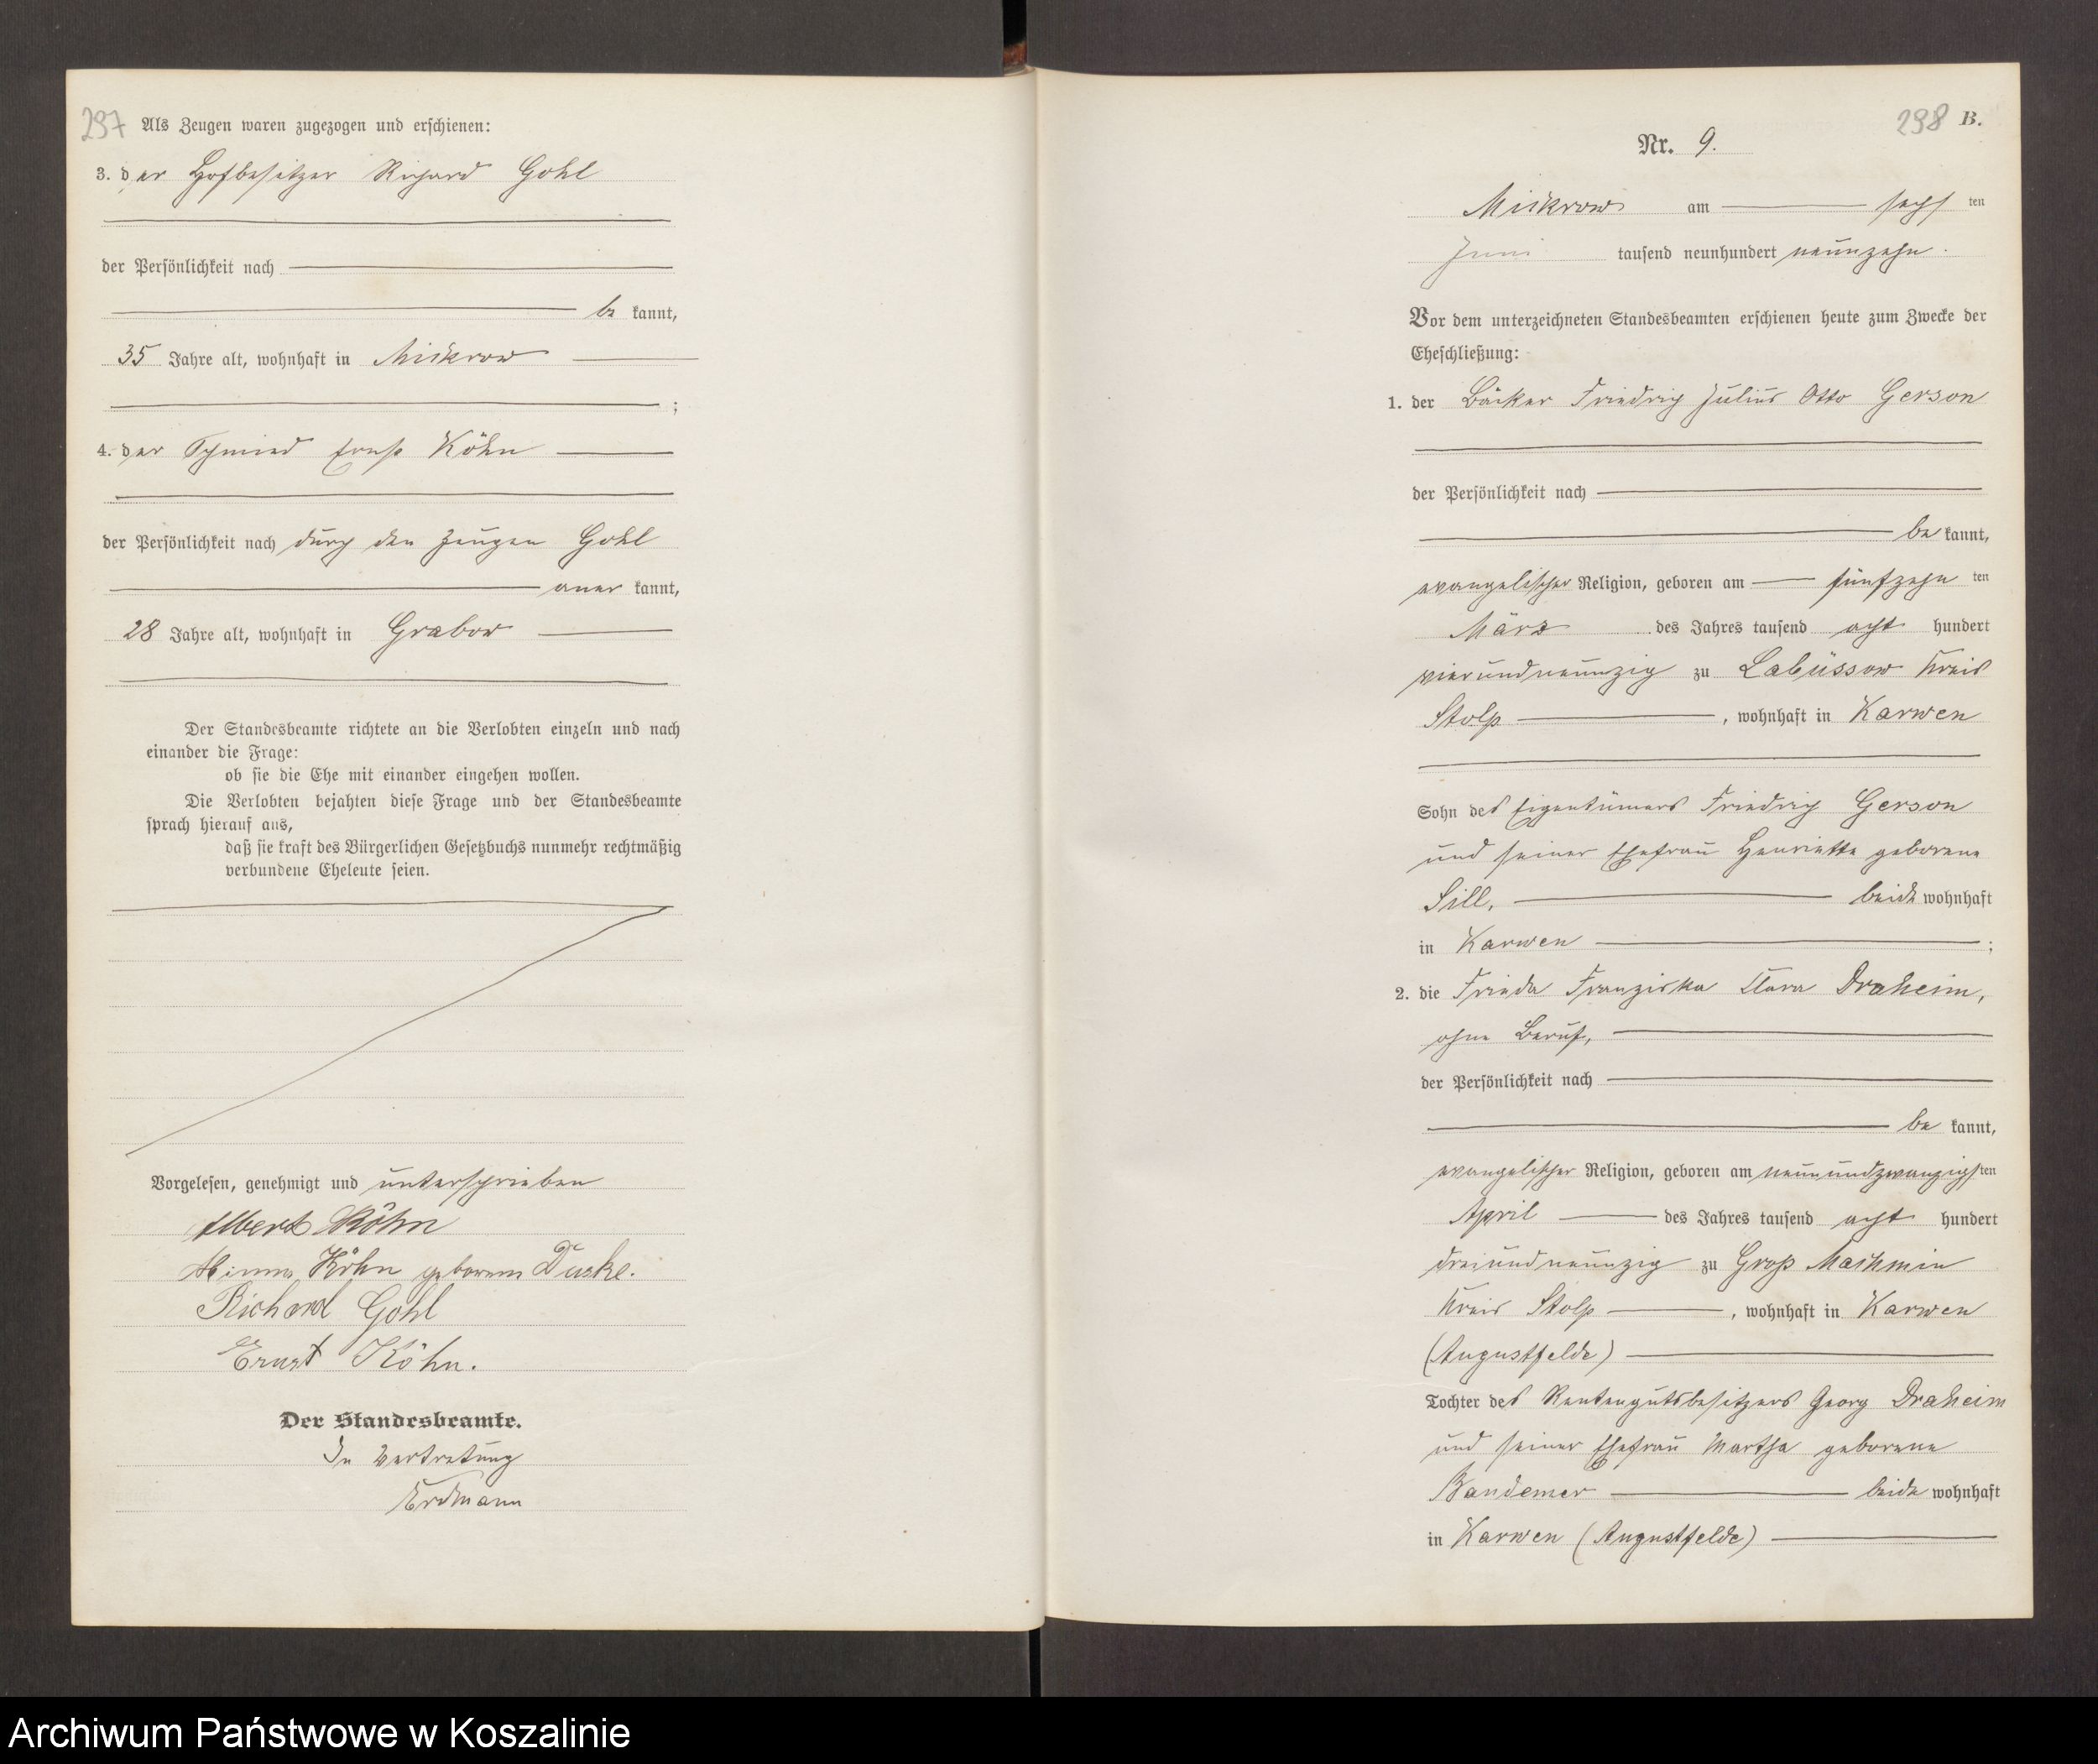 297
Als Zeugen waren zugezogen und erschienen:
3. der Hofbesitzer Richard Gohl
der Persönlichkeit nach
be kannt,
35 Jahre alt, wohnhaft in Mikrow
;
4. der Schmied Ernst Köhn
der Persönlichkeit nach durch den Zeugen Gohl
aner kannt,
28 Jahre alt, wohnhaft in Grabow
Der Standesbeamte richtete an die Verlobten einzeln und nach
einander die Frage:
ob sie die Ehe mit einander eingehen wollen.
Die Verlobten bejahten diese Frage und der Standesbeamte
sprach hierauf aus,
daß sie kraft des Bürgerlichen Gesetzbuchs nunmehr rechtmäßig
verbundene Eheleute seien.
Vorgelesen, genehmigt und unterschrieben
Albert Köhn
Minna Köhn geborene Duske.
Richard Gohl
Ernst Köhn.
Der Standesbeamte.
In Vertretung
Erdmann
298 B.
Nr. 9.
Mikrow am sechs ten
Juni tausend neunhundert neunzehn.
Vor dem unterzeichneten Standesbeamten erschienen heute zum Zwecke der
Eheschließung:
1. der Bäcker Friedrich Julius Otto Gerson
der Persönlichkeit nach
be kannt,
evangelischer Religion, geboren am fünfzehn ten
März des Jahres tausend acht hundert
vierundneunzig zu Labüssow Kreis
Stolp, wohnhaft in Karwen
Sohn des Eigentümers Friedrich Gerson
und seiner Ehefrau Henriette geborene
Sill, beide wohnhaft
in Karwen ;
2. die Frieda Franziska Clara Draheim,
ohne Beruf,
der Persönlichkeit nach
be kannt,
evangelischer Religion, geboren am neunundzwanzigsten
April des Jahres tausend acht hundert
dreiundneunzig zu Groß Machmin
Kreis Stolp, wohnhaft in Karwen
(Augustfelde)
Tochter des Rentengutsbesitzers Georg Draheim
und seiner Ehefrau Martha geborene
Bandemer beide wohnhaft
in Karwen (Augustfelde)
Archiwum Państwowe w Koszalinie